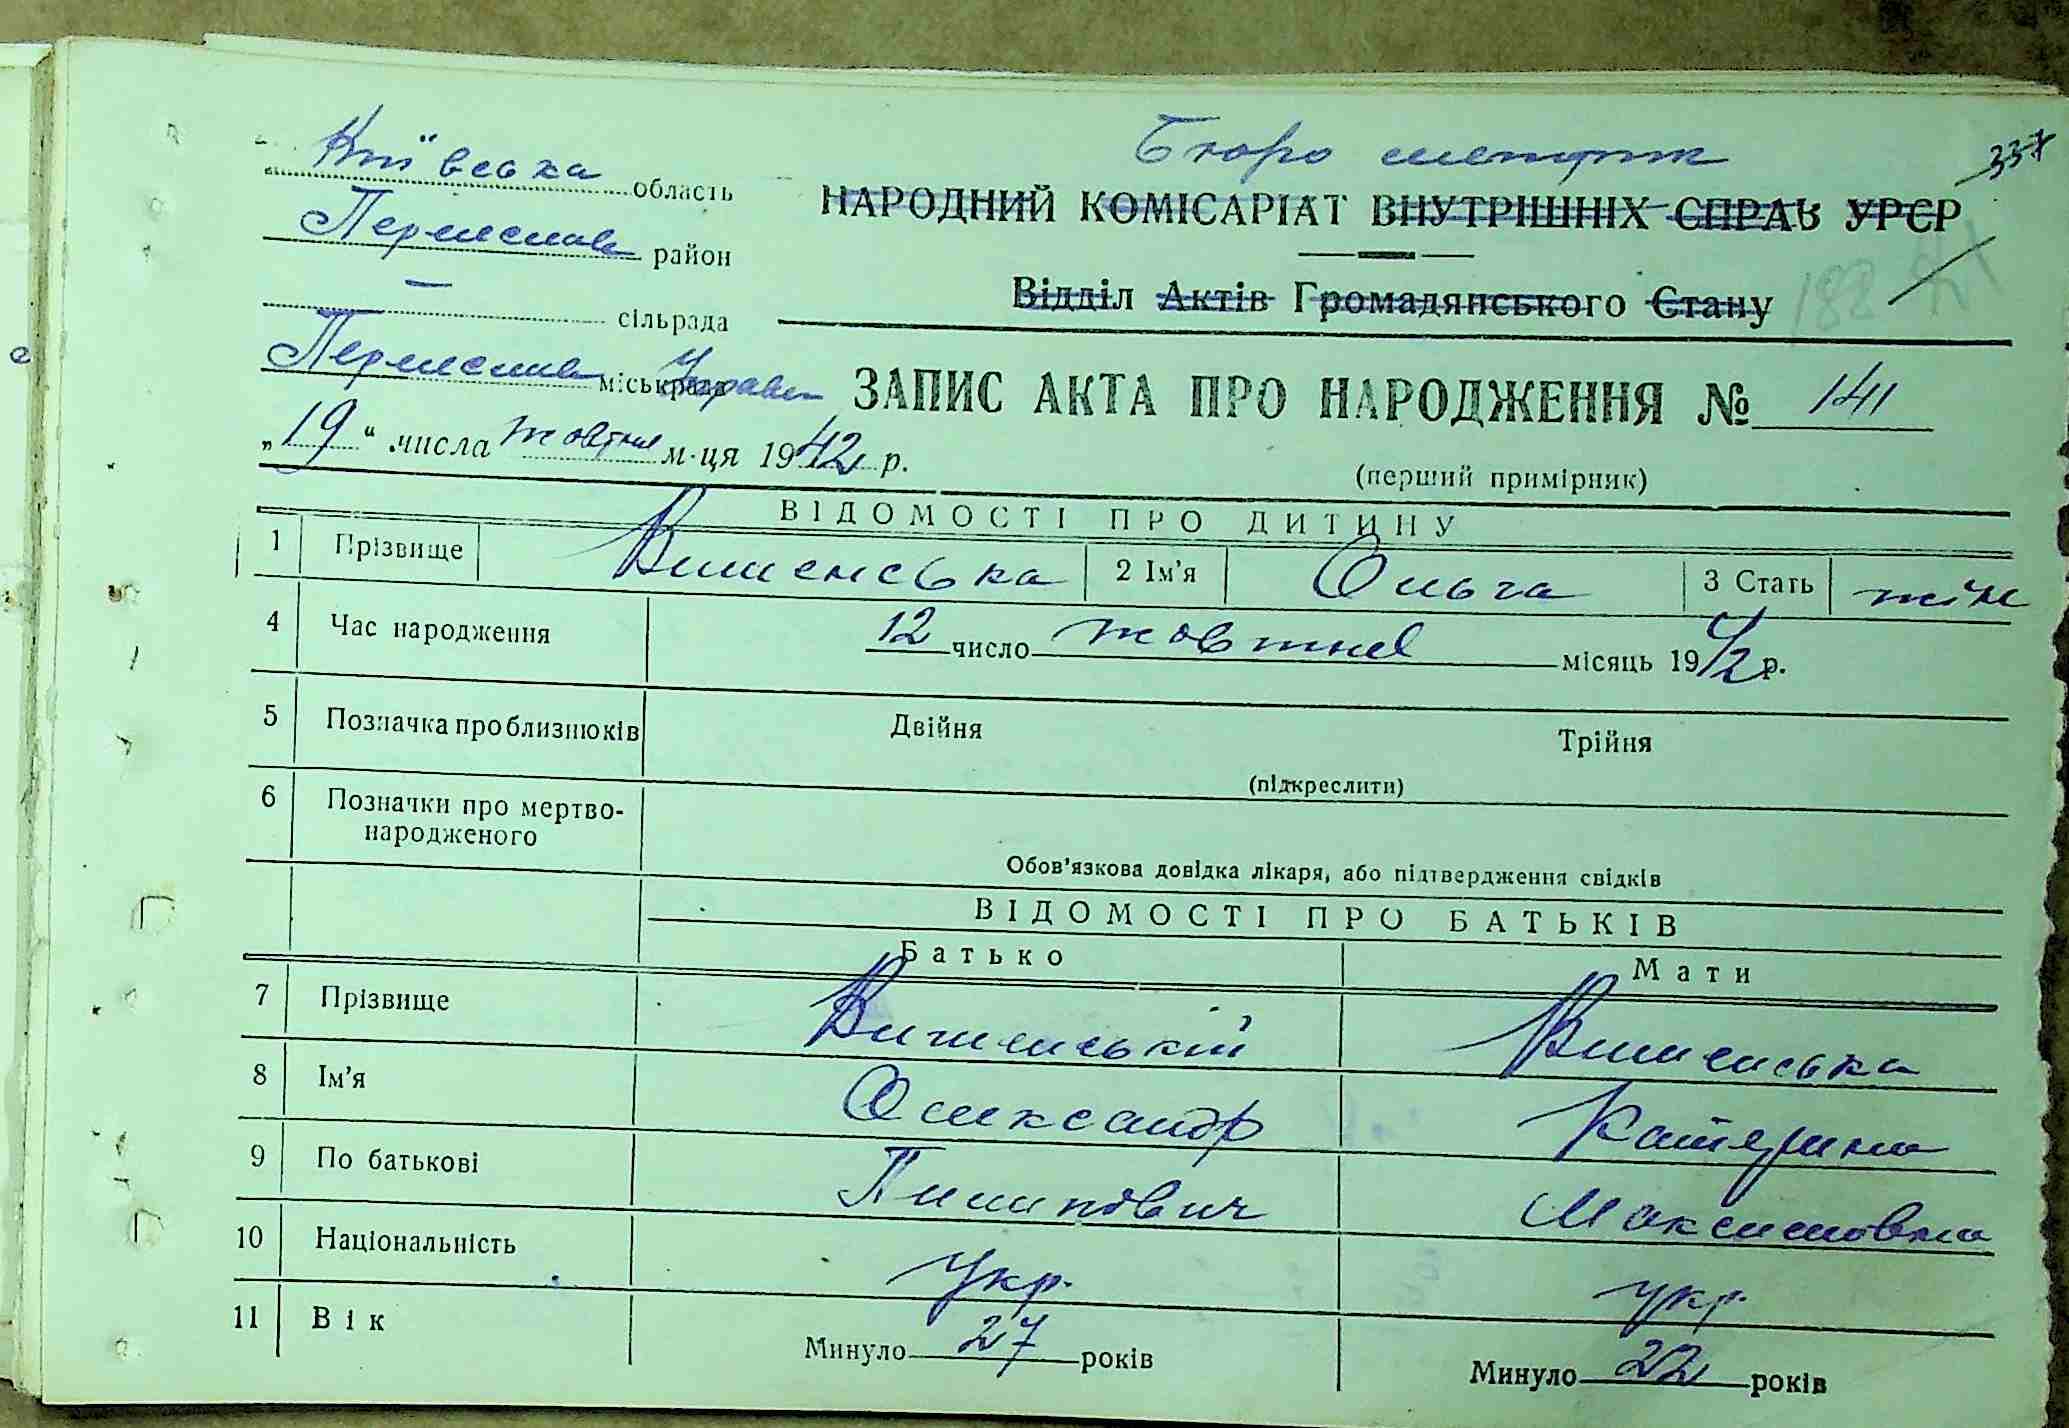 Київська область
Переяслав район
— сільрада
Переяслав міськрада Управ
„19“ числа жовтня м-ця 1942 р.
Бюро метрик
337
НАРОДНИЙ КОМІСАРІАТ ВНУТРІШНІХ СПРАВ УРСР
Відділ Актів Громадянського Стану
188
ЗАПИС АКТА ПРО НАРОДЖЕННЯ № 141
(перший примірник)
ВІДОМОСТІ ПРО ДИТИНУ
1 Прізвище Вишенська 2 Ім'я Ольга 3 Стать жін
4 Час народження 12 число жовтня місяць 1942 р.
5 Позначка про близнюків Двійня Трійня
(підкреслити)
6 Позначки про мертво-
народженого
Обов'язкова довідка лікаря, або підтвердження свідків
ВІДОМОСТІ ПРО БАТЬКІВ
Батько Мати
7 Прізвище Вишенський Вишенська
8 Ім'я Олександр Катерина
9 По батькові Пилипович Максимовна
10 Національність Укр. укр.
11 Вік Минуло 27 років Минуло 22 років